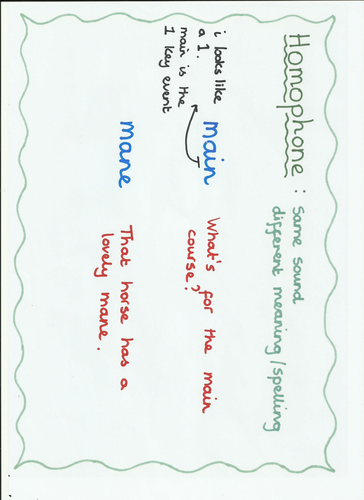 Homophone : Same sound
different meaning/spelling
i looks like
a 1.
main is the
1 key event
main
What's for the main
course?
mane
That horse has a
lovely mane.